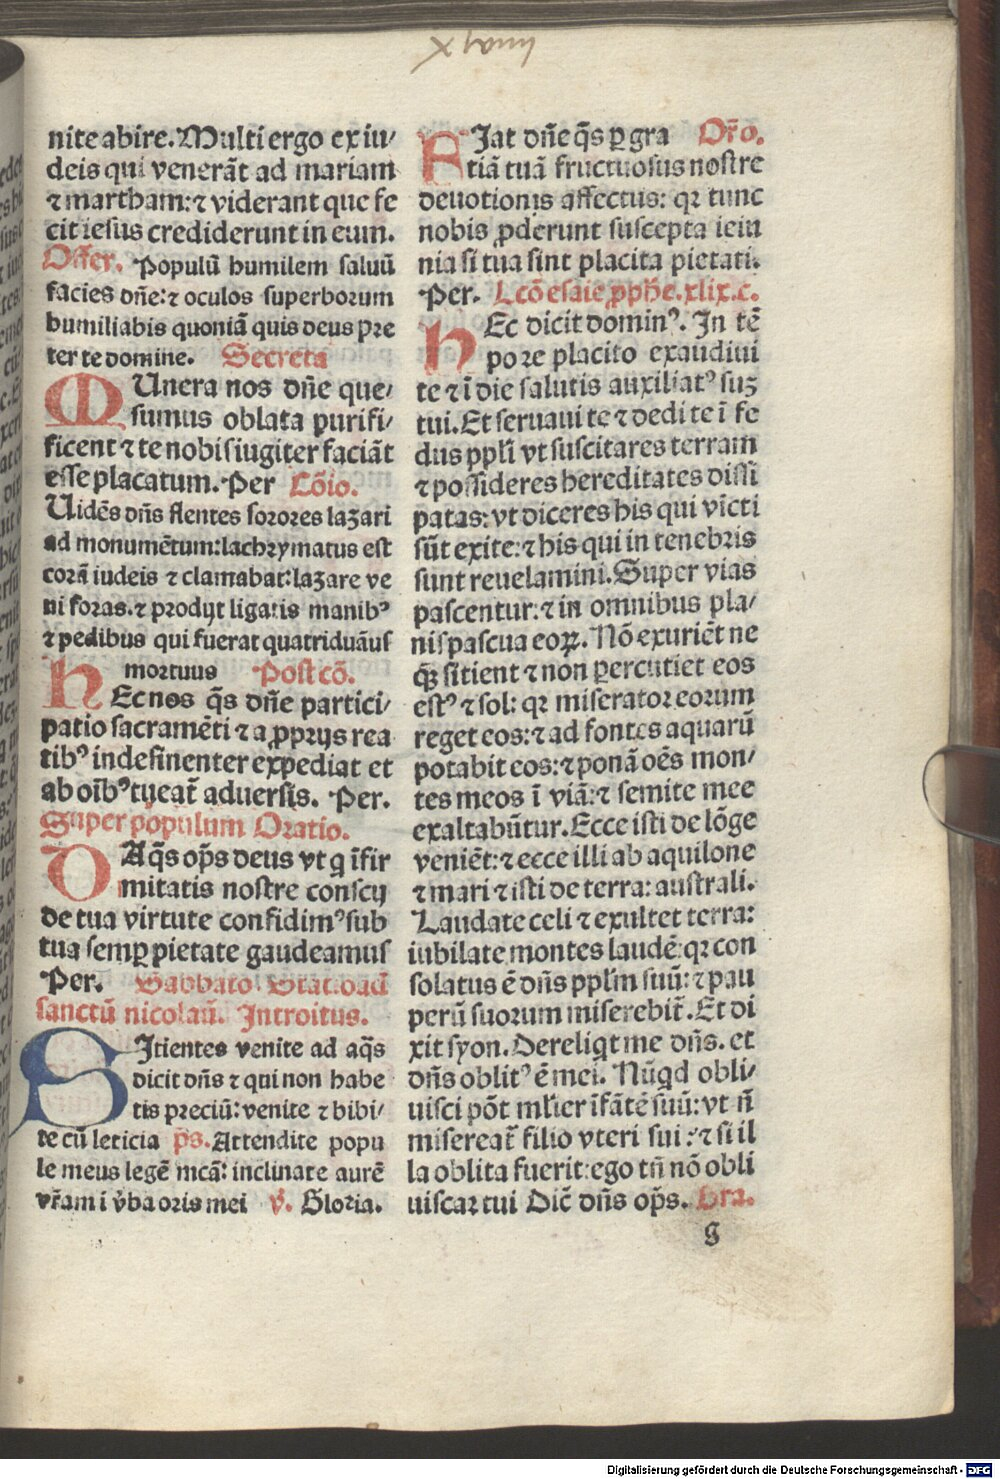 xlviij
nite abire. Multi ergo ex iu/
deis qui venerãt ad mariam
⁊ martham: ⁊ viderant que fe
cit iesus crediderunt in eum.
Offer. Populũ humilem saluũ
facies dñe: ⁊ oculos superborum
humiliabis quoniã quis deus pre
ter te domine. Secreta
MUnera nos dñe que/
sumus oblata purifi/
ficent ⁊ te nobis iugiter faciãt
esse placatum. Per Cõio.
Uidẽs dñs flentes sorores lazari
ad monumẽtum: lachrymatus est
corã iudeis ⁊ clamabat: lazare ve
ni foras. ⁊ prodijt ligatis manibꝰ
⁊ pedibus qui fuerat quatriduãus
mortuus Post cõ.
HEc nos q̃s dñe partici/
patio sacramẽti ⁊ a ꝓprijs rea
tibꝰ indesinenter expediat et
ab oĩbꝰ tueat̃ aduersis. Per.
Super populum Oratio.
DA q̃s op̃s deus vt q ĩfir
mitatis nostre conscij
de tua virtute confidimꝰ sub
tua semꝑ pietate gaudeamus
Per. Sabbato. Stat. ad
sanctũ nicolaũ. Introitus.
SItientes venite ad aq̃s
dicit dñs ⁊ qui non habe
tis preciũ: venite ⁊ bibi/
te cũ leticia ps. Attendite popu
le meus legẽ meã: inclinate aurẽ
vr̃am i v̓ba oris mei v̓. Gloria.
FIat dñe q̃s ꝑ gra Or̃o.
tiã tuã fructuosus nostre
deuotionis affectus: qꝛ tunc
nobis ꝓderunt suscepta ieiu
nia si tua sint placita pietati.
Per. Lcõ esaie ꝓpħe. xlix. c.
HEc dicit dominꝰ. In tẽ
pore placito exaudiui
te ⁊ ĩ die salutis auxiliatꝰ suꝫ
tui. Et seruaui te ⁊ dedi te ĩ fe
dus ppl̃i vt suscitares terram
⁊ possideres hereditates dissi
patas: vt diceres his qui vĩcti
sũt exite: ⁊ his qui in tenebris
sunt reuelamini. Super vias
pascentur: ⁊ in omnibus pla/
nis pascua eoꝝ. Nõ exuriẽt ne
qꝫ sitient ⁊ non percutiet eos
estꝰ ⁊ sol: qꝛ miserator eorum
reget eos: ⁊ ad fontes aquarũ
potabit eos: ⁊ ponã oẽs mon/
tes meos ĩ viã: ⁊ semite mee
exaltabũtur. Ecce isti de lõge
veniẽt: ⁊ ecce illi ab aquilone
⁊ mari ⁊ isti de terra: australi.
Laudate celi ⁊ exultet terra:
iubilate montes laudẽ: qꝛ con
solatus ẽ dñs ppl̃m suũ: ⁊ pau
perũ suorum miserebit̃. Et di
xit syon. Dereliqt me dñs. et
dñs oblitꝰ ẽ mei. Nũqd obli/
uisci põt ml̃ier ĩfãtẽ suũ: vt ñ
misereat̃ filio vteri sui: ⁊ si il
la oblita fuerit: ego tñ nõ obli
uiscar tui Dic̃ dñs op̃s. Gra.
g
Digitalisierung gefördert durch die Deutsche Forschungsgemeinschaft - DFG